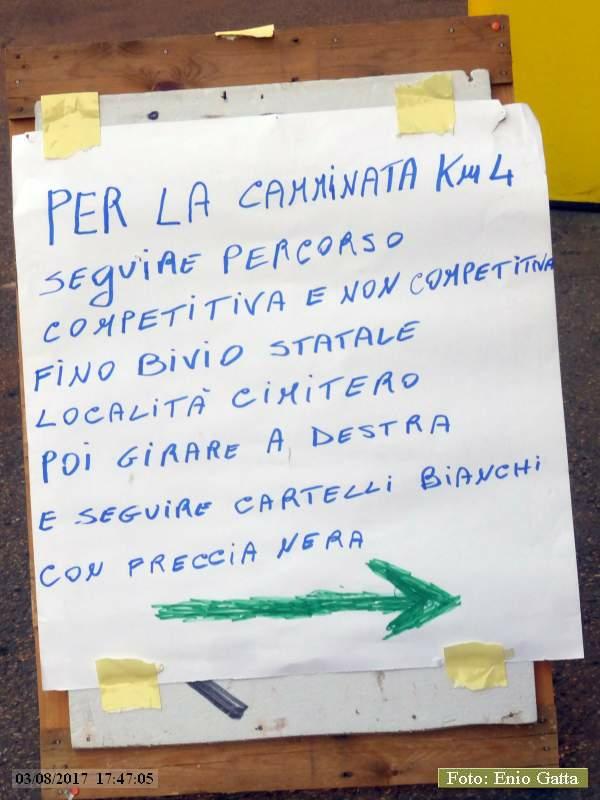 PER LA CAMMINATA KM 4
SEGUIRE PERCORSO
COMPETITIVA E NON COMPETITIVA
FINO BIVIO STATALE
LOCALITÀ CIMITERO
POI GIRARE A DESTRA
E SEGUIRE CARTELLI BIANCHI
CON FRECCIA NERA
03/08/2017 17:47:05
Foto: Enio Gatta